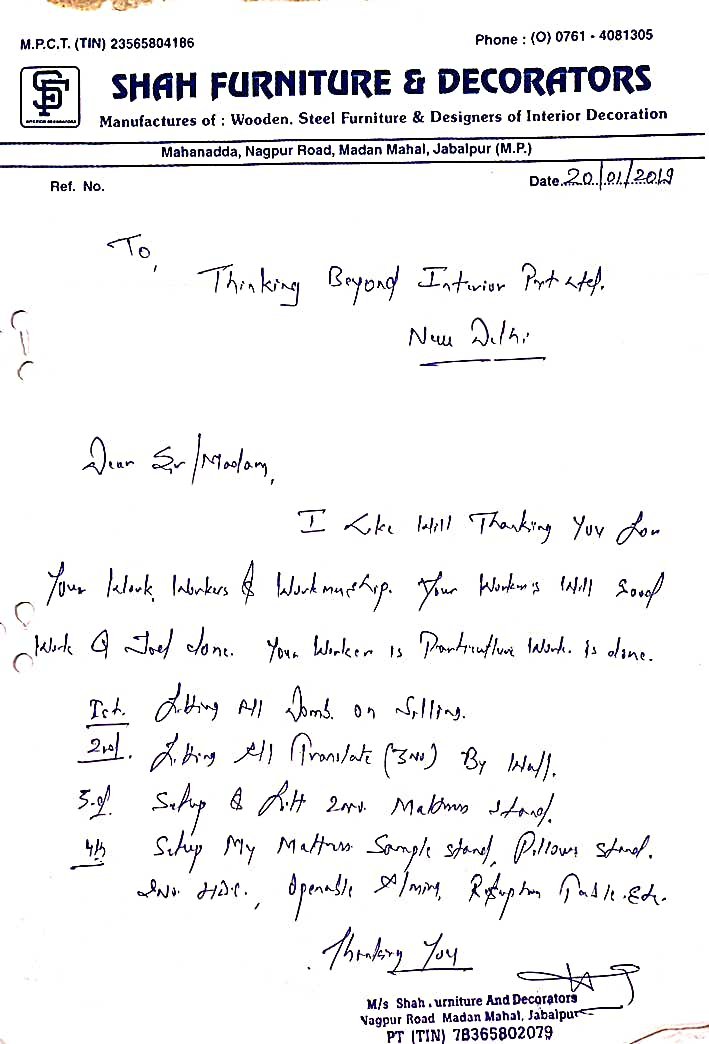 M.P.C.T. (TIN) 23565804186
Phone : (O) 0761 - 4081305
SHAH FURNITURE & DECORATORS
Manufactures of : Wooden. Steel Furniture & Designers of Interior Decoration
Mahanadda, Nagpur Road, Madan Mahal, Jabalpur (M.P.)
Ref. No.
Date 20/01/2019
To,
Thinking Beyond Interior Pvt Ltd.
New Delhi
Dear Sir/Madam,
I Like Will Thanking You for
Your Work, Workers & Workmanship. Your Workers Will Good
Work & done. Your Worker is Work. is done.
Ist. fitting All on
2nd. fitting All Translate (3No) By Wall.
3rd. Setup & fit 2no. Mattress Stand.
4th Setup My Mattress Sample stand, Pillows Stand.
Openable Table. Etc.
Thanking You
M/s Shah urniture And Decorators
Nagpur Road Madan Mahal, Jabalpur
PT (TIN) 78365802079